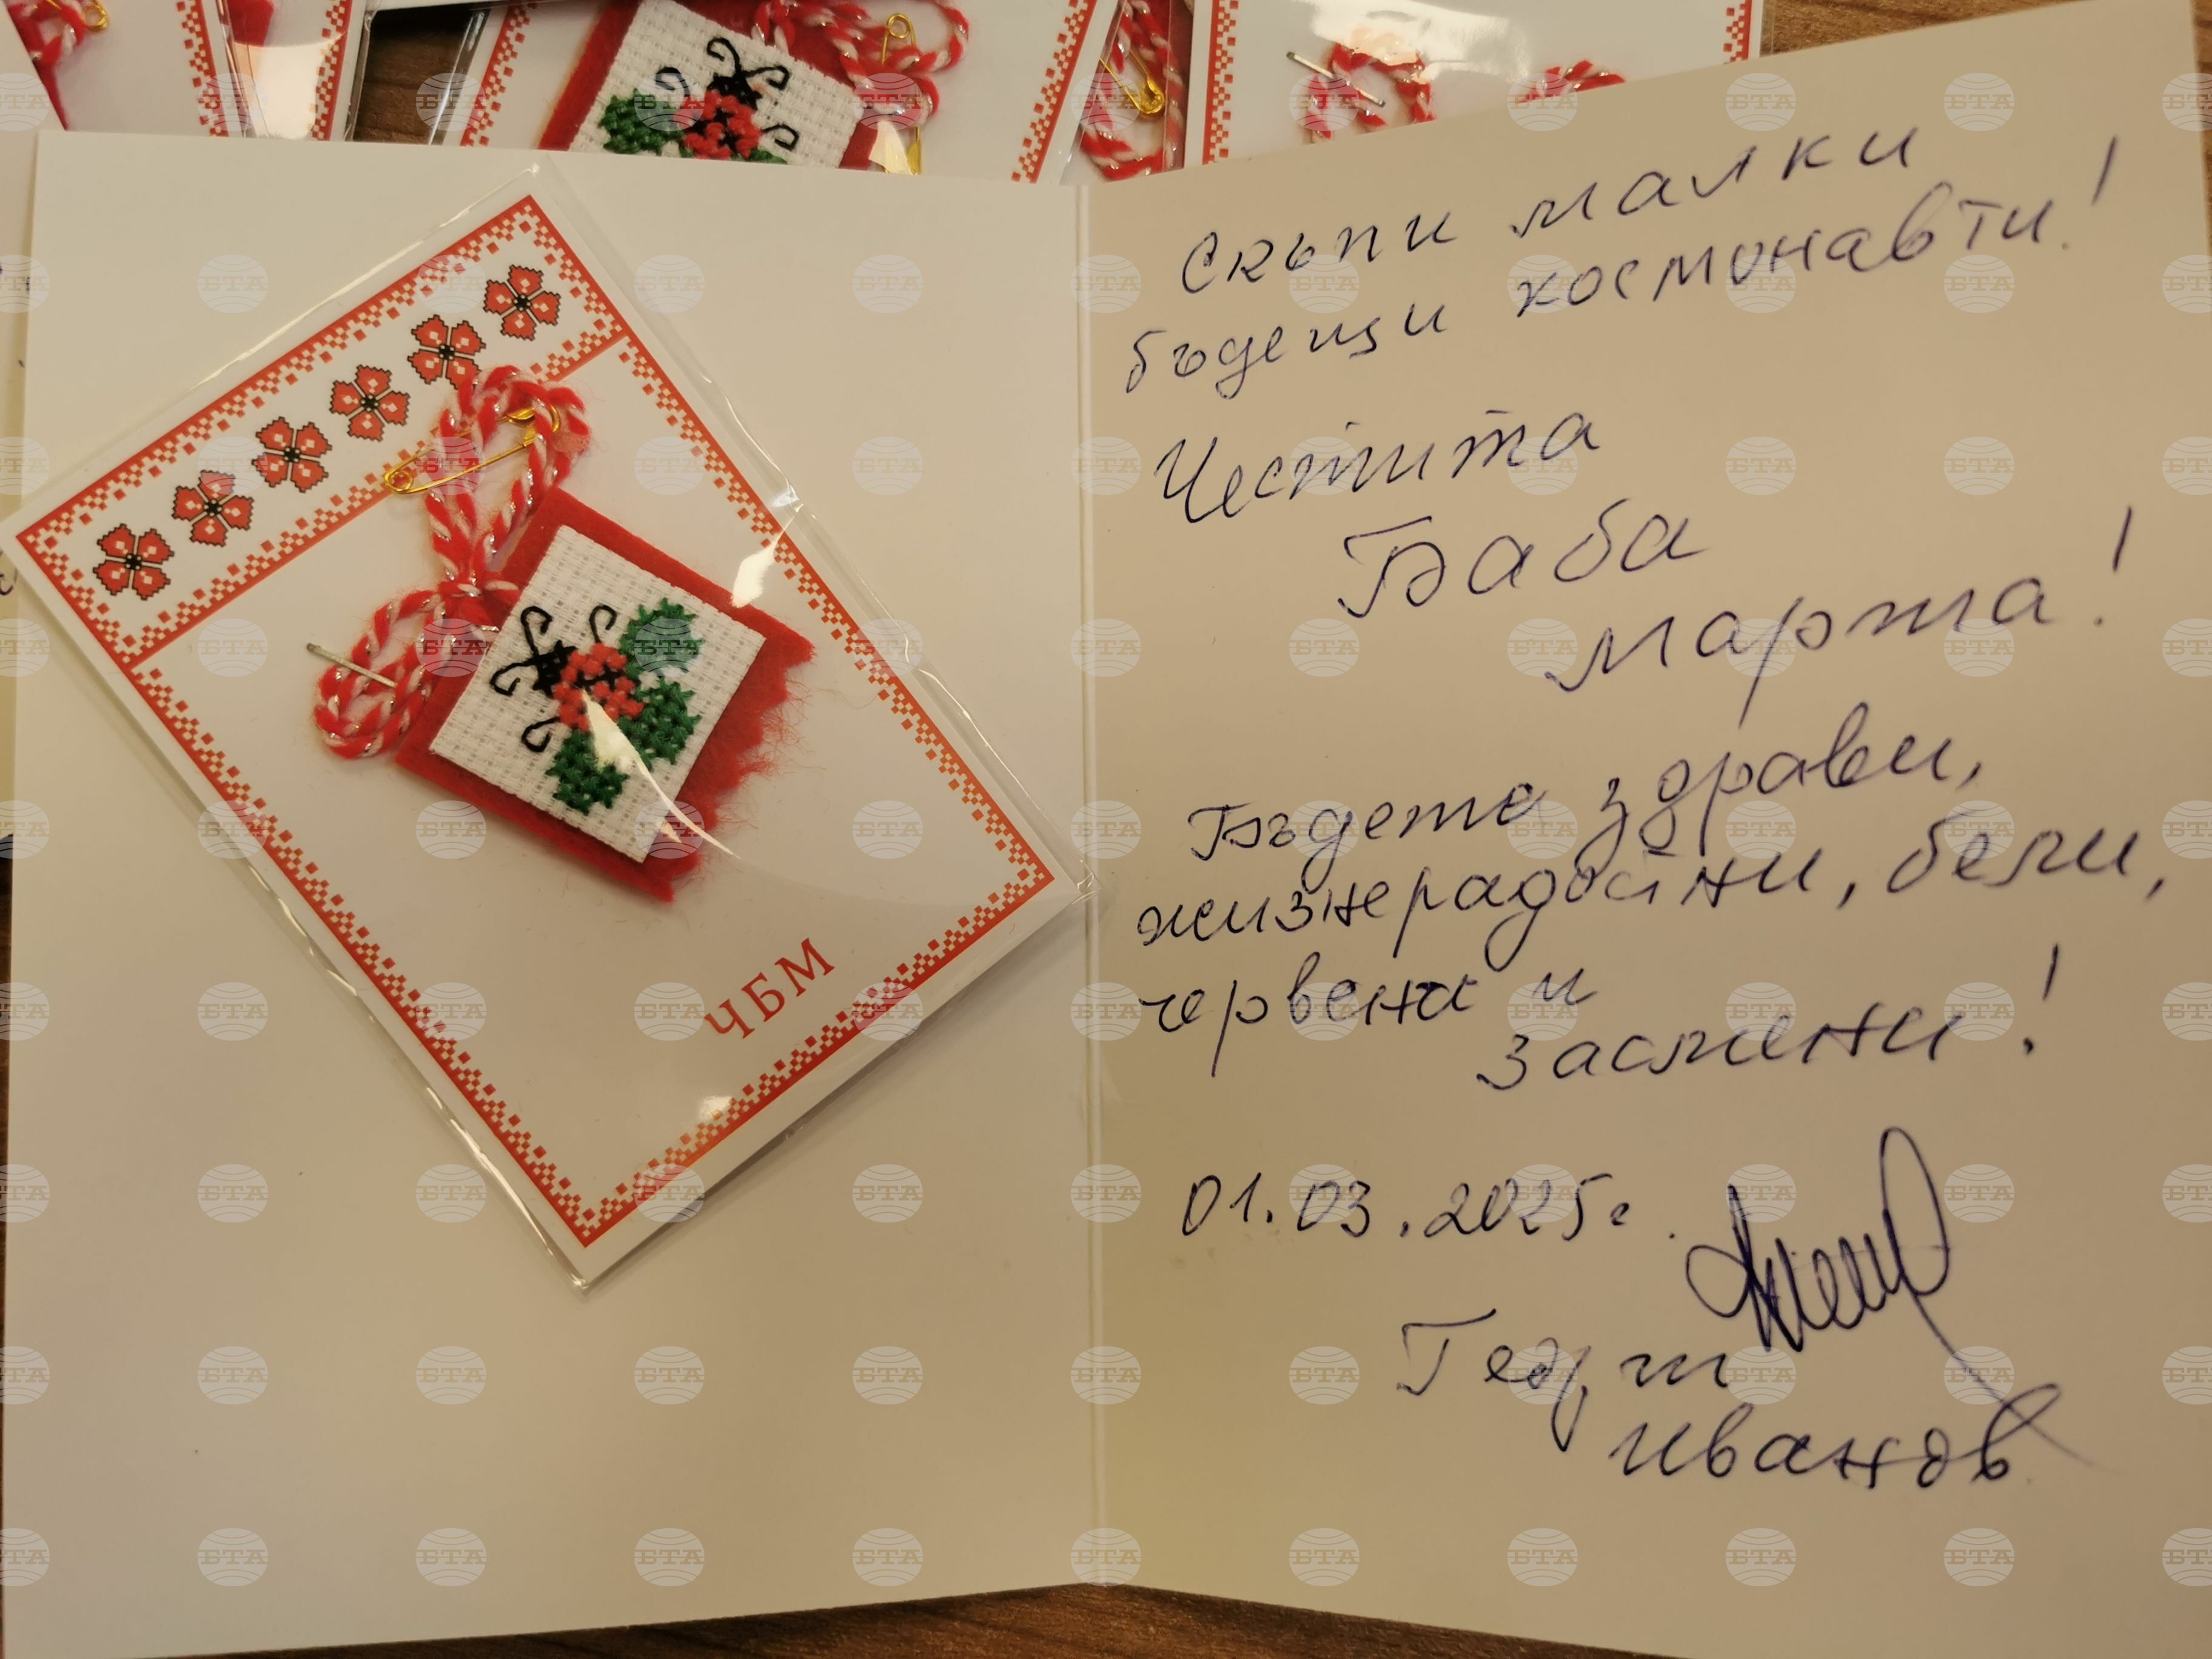 ЧБМ
Скъпи малки
бъдещи космонавти!
Честита
Баба
Марта!
Бъдете здрави,
жизнерадостни, бели,
червени и
засмени!
01.03.2025г.
Георги
Иванов
БТА